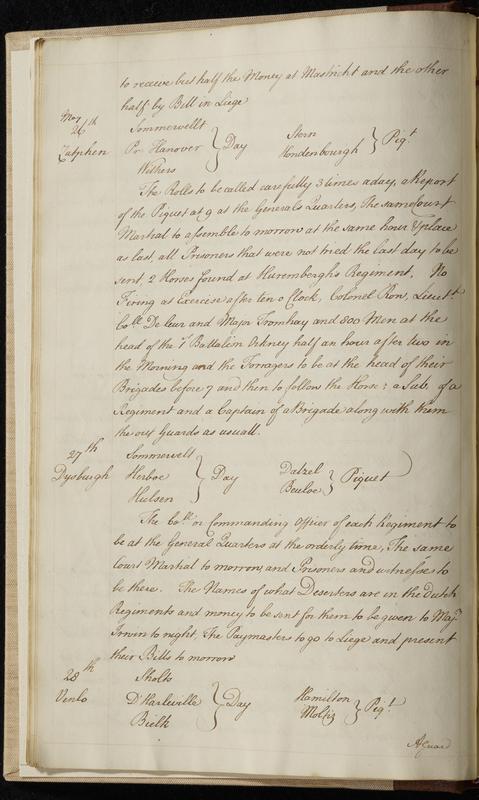 to receive but half the Money at Mastricht and the other
half by Bill in Liege
May
26th Sommervellt
Zutphen Pr: Hanover } Day Stern
Hondenbourgh } Piqt
Withers
The Rolls to be called carefully 3 times a day, a Report
of the Piquet at 9 at the Generals Quarters, The same Court
Martial to assemble to morrow at the same hour & place
as last, all Prisoners that were not tried the last day to be
sent, 2 Horses found at Huremberghs Regiment. No
Firing at Exercise after ten o Clock, Colonel Row, Lieutt
Coll. De leur and Major Tromhay and 800 Men at the
head of the 1st Battalin Orkney half an hour after two in
the Morning and the Forragers to be at the head of their
Brigades before 7 and then to follow the Horse: a Sub. of a
Regiment and a Captain of a Brigade along with them
the out Guards as usuall.
27th Sommervelt
Dysburgh Herboe } Day Dalzel
Beuloe } Piquet
Hulsen
The Coll. or Commanding Officer of each Regiment to
be at the General Quarters at the orderly time, The same
Court Martial to morrow, and Prisoners and witnesses to
be there. The Names of what Deserters are in the Dutch
Regiments and money to be sent for them to be given to Majr
Irwin to night, The Paymasters to go to Liege and present
their Bills to morrow
28th Sholts
Venlo D'Harleville } Day Hamilton
Moltz } Piqt
Bielk
A Guard